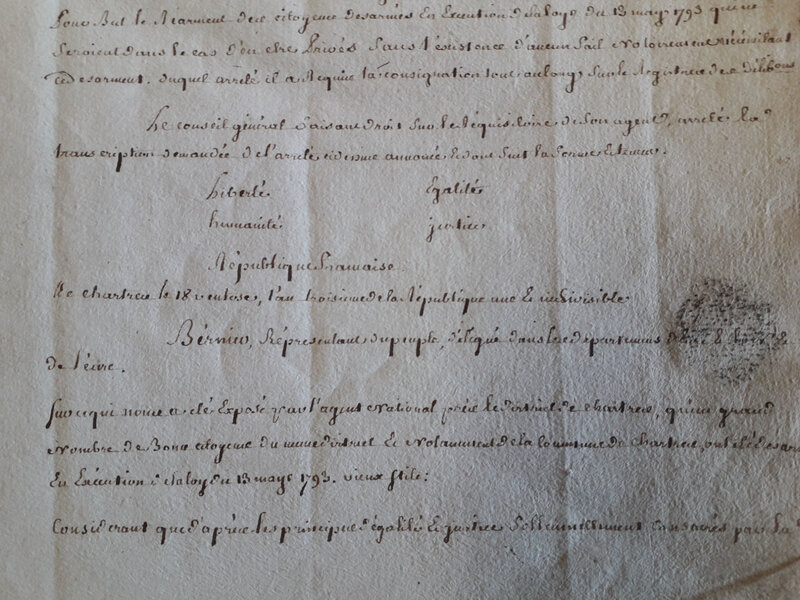 Pour But le Réarment des citoyens desarmés En Execution de la loy du 13 mars 1793 qui ne
Seroient dans le cas d'en etre Privés Sans l'existence d'aucun fait Notoirement nécessitant
ce desarment. Duquel arrêté il a Requis la Consignation tout au long Sur le Registre des délibons
Le conseil général faisant droit Sur le réquisitoire de Son agent, arrête la
transcription demandée de l'arrêté cidessus annoncé & dont Suit la forme & teneur.
Liberté Egalité
humanité justice
République française
De chartres le 18 ventose, l'an troisieme de la République une & indivisible
Bérnier, Réprésentant du peuple, délégué dans les départemens
de l'eure.
Sur ce qui nous a été Exposé par l'agent National près le district de chartres, qu'un grand
Nombre de Bons citoyens du meme district & Notamment de la Commune de chartres, ont été desar
En Exécution de la loy du 13 mars 1793. vieux stile:
Considerant que d'après les principes d'égalité & justice Sollennellement Consacrés par la